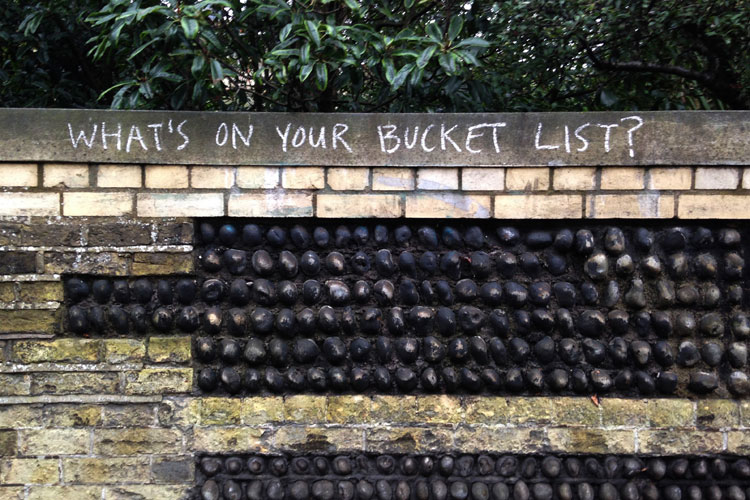 WHAT'S ON YOUR BUCKET LIST?